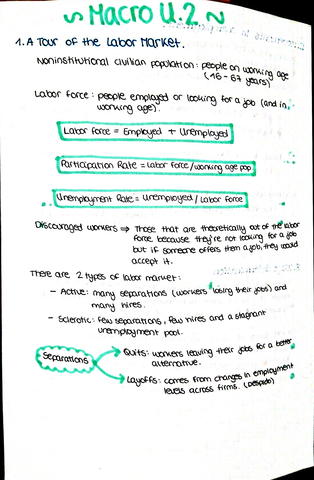 ~ Macro U.2 ~
1. A Tour of the Labor Market.
Noninstitutional civilian population: people on working age
(16-67 years)
Labor force: people employed or looking for a job (and in
working age).
Labor force = Employed + Unemployed
Participation Rate = Labor force/working age pop
Unemployment Rate = Unemployed / Labor force
Discouraged workers ⇒ Those that are theoretically out of the labor
force because they're not looking for a job
but if someone offers them a job, they would
accept it.
There are 2 types of labor market:
- Active: many separations (workers losing their jobs) and
many hires.
- Sclerotic: few separations, few hires and a stagnant
unemployment pool.
Separations
Quits: workers leaving their jobs for a better
alternative.
Layoffs: comes from changes in employment
levels across firms. (Despido)